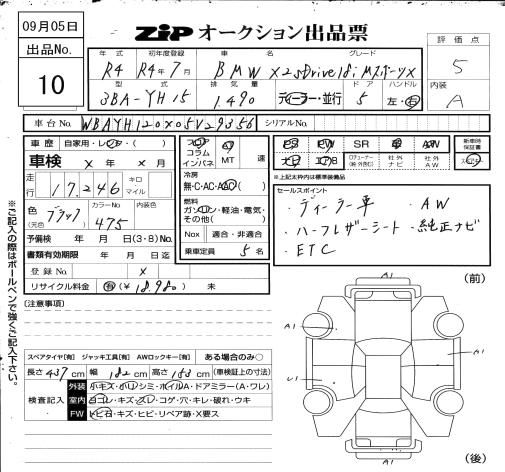 09月05日
出品No.
10
ZiP オークション出品票
評価点
5
内装
A
年式 初年度登録 車名 グレード
R4 R4年7月 BMW X2 sDrive18i MスポーツX
型式 排気量 ドア ハンドル
3BA-YH15 1.490 ディーラー・並行 5 左・右
車台No. WBAYH120X05V29356 シリアルNo.
車歴 自家用・レンタ・( )
車検 X年 X月
走行 17,246 キロ マイル
色 ブラック カラーNo 475 内装色
予備検 年 月 日(3・8)No.
書類有効期限 年 月 日迄
登録No. X
リサイクル料金 有(¥18,980) 未
フロア コラム インパネ MT 速
冷房
無・C・AC・AAC( )
燃料
ガソリン・軽油・電気・その他( )
Nox 適合・非適合
乗車定員 5名
SR AW
エアB 社外ナビ 社外AW
新車時保証書
※上記太枠内は標準装備品
セールスポイント
・ディーラー車 ・AW
・ハーフレザーシート ・純正ナビ
・ETC
(注意事項)
スペアタイヤ[有] ジャッキ工具[有] AWロックキー[有] ある場合のみ○
長さ 437cm 幅 182cm 高さ 153cm (車検証上の寸法)
検査記入
外装 小キズ・小凹・シミ・ホイルA・ドアミラー(A・ワレ)
室内 ヨゴレ・キズ・スレ・コゲ・穴・キレ・破れ・ウキ
FW トビ石・キズ・ヒビ・リペア跡・X要ス
※ご記入の際はボールペンで強くご記入下さい。
A1
(前)
A1
A1
U1
A1
(後)